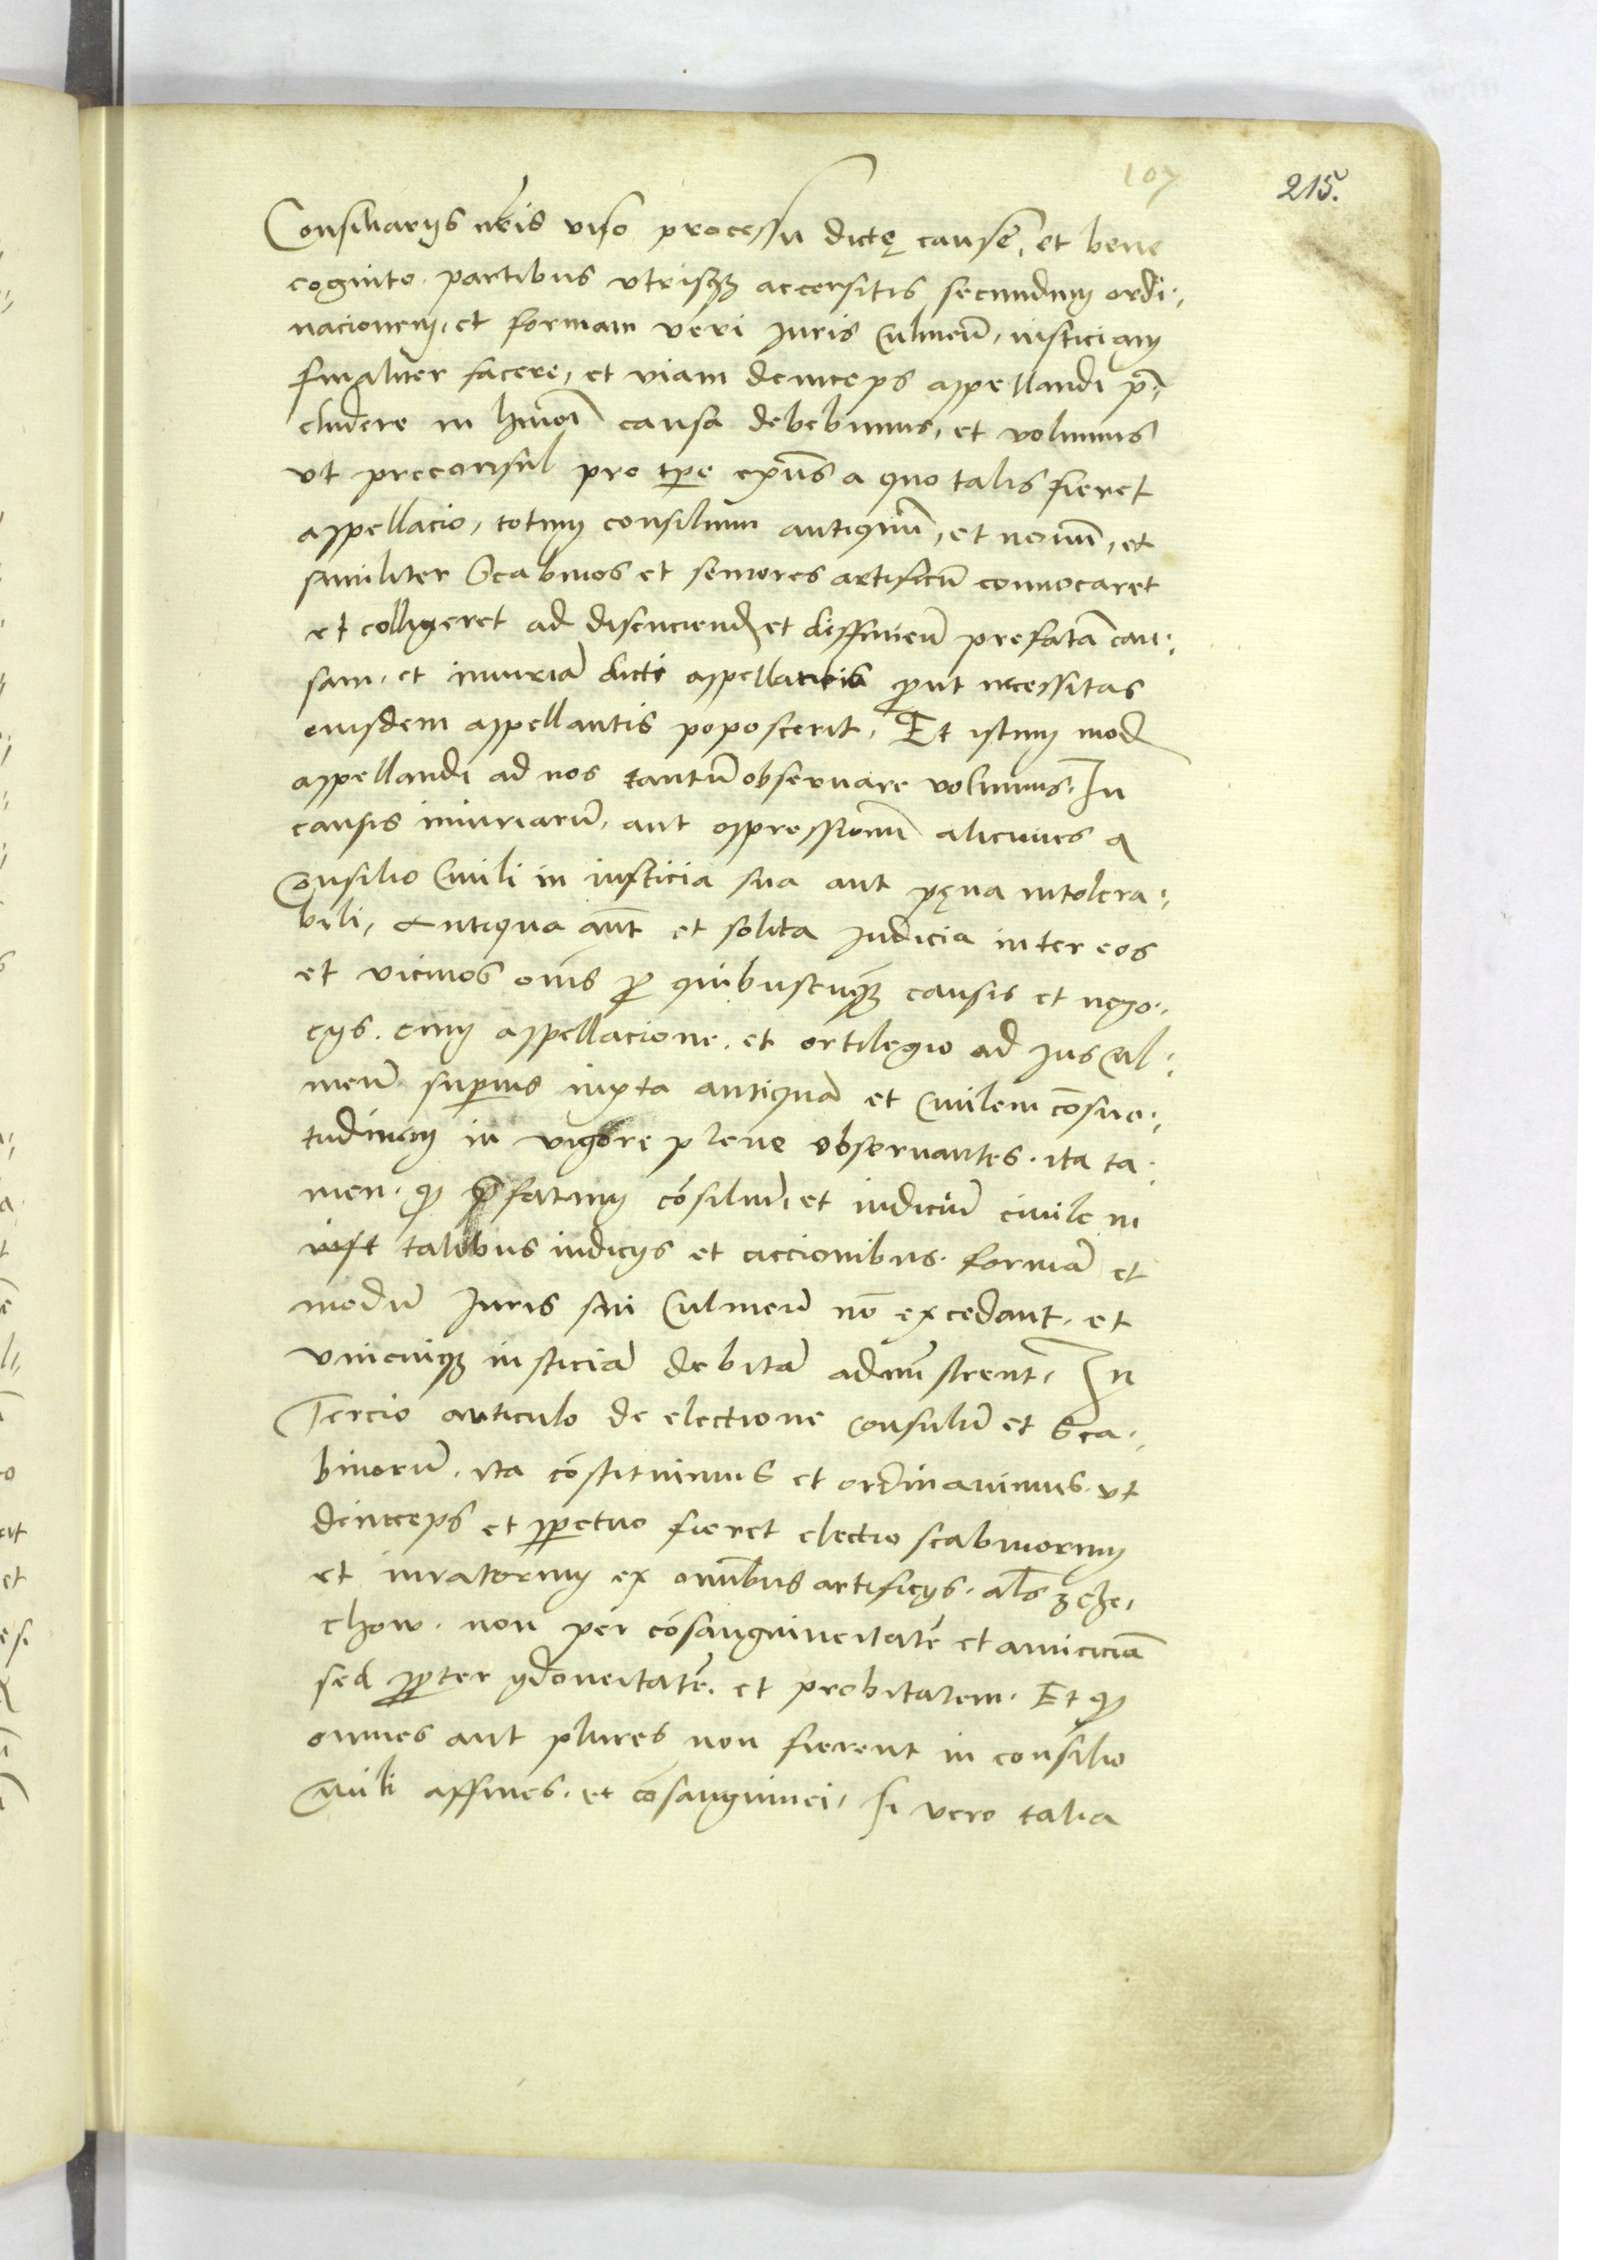 107
215.
Consiliarijs nr̄is viso processu dictę cause, et bene
cognito. partibus vtrisqꝫ accersitis secundum ordi-
nacionem, et formam veri Juris Culmeñ, iusticiam
finaliter facere, et viam deinceps appellandi p̄-
cludere in hmōi causa debebimus, et volumus
vt preconsul pro tꝑe exn̄s a quo talis fieret
appellacio, totum consilium antiquū, et nouū, et
similiter Scabinos et seniores artificū conuocaret
et colligeret ad discuciend et diffiniend prefatā cau-
sam, et iniuriā dicti appellantis ꝓut necessitas
eiusdem appellantis poposcerit, Et istum mod
appellandi ad nos tantū obseruare volumus. In
causis iniuriarū, aut oppressionū alicuius a
Consilio Ciuili in iusticia sua aut pęna intolera-
bili, Antiqua aūt et solita Judicia inter eos
et vicinos om̄s ꝓ quibuscunqꝫ causis et nego-
cijs. cum appellacione. et ortilegio ad Jus Cul-
meñ superius iuxta antiquā et Ciuilem cōsue-
tudinem in vigore plene obseruantes. ita ta-
men. qꝫ p̄fatum cōsiliū, et iudiciū ciuile in
talibus iudicijs et accionibus. formā et
modū Juris sui Culmeñ nō excedant. et
vnicuiqꝫ iusticiā debitā admīstrent, In
Tercio articulo de electione Consulū et Sca-
binorū. ita cōstituimus et ordinauimus. vt
deinceps et ꝑpetuo fieret electio scabinorum
et iuratorum ex omībus artificijs. al̄s
chow. non per cōsanguineitatē et amiciciā
sed ꝓpter ydoneitatē. et probitatem. Et qꝫ
omnes aut plures non fierent in consilio
Ciuili affines. et cōsanguinei, Si vero talia